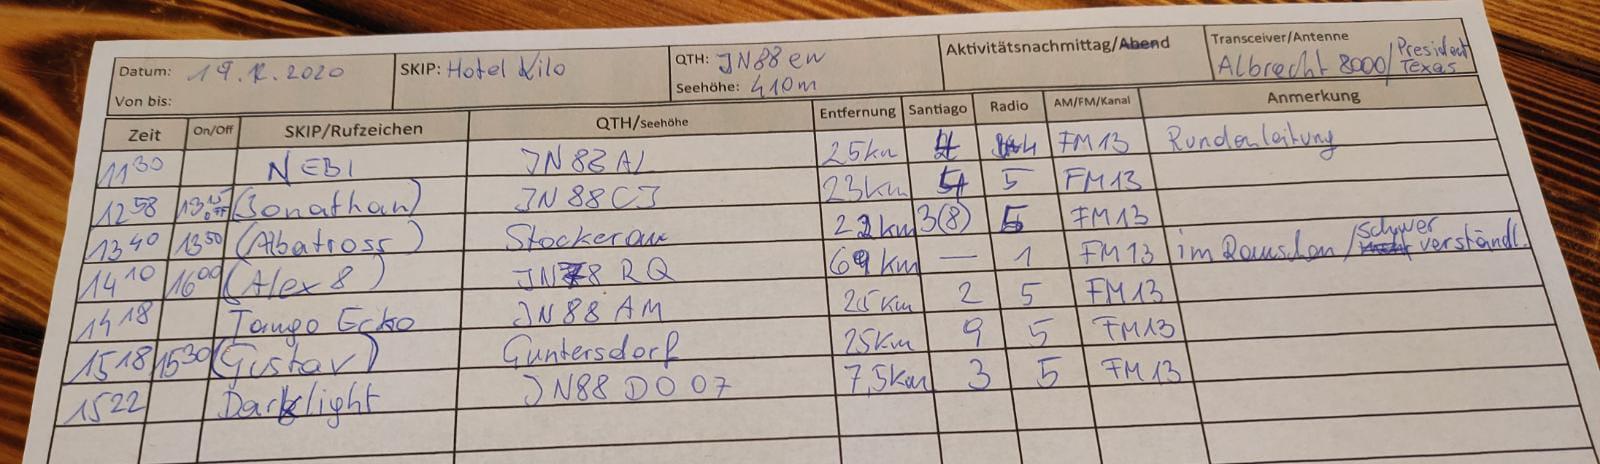 Datum: 19.12.2020 SKIP: Hotel Kilo QTH: JN88ew Aktivitätsnachmittag/Abend Transceiver/Antenne
Von bis: Seehöhe: 410m Albrecht 8000/President Texas
Zeit On/Off SKIP/Rufzeichen QTH/Seehöhe Entfernung Santiago Radio AM/FM/Kanal Anmerkung
11 30 NEBI JN88AL 25km 4 FM13 Rundenleitung
12 58 13 15 OFF (Jonathan) JN88CJ 23km 5 FM13
13 40 13 50 (Albatross) Stockerau 22km 3(8) 5 FM13
14 10 16 00 (Alex 8) JN78RQ 69km — 1 FM13 im Rauschen/schwer verständl.
14 18 Tango Ecko JN88AM 25km 2 5 FM13
15 18 15 30 (Gustav) Guntersdorf 25km 9 5 FM13
15 22 Darklight JN88DO07 7,5km 3 5 FM13